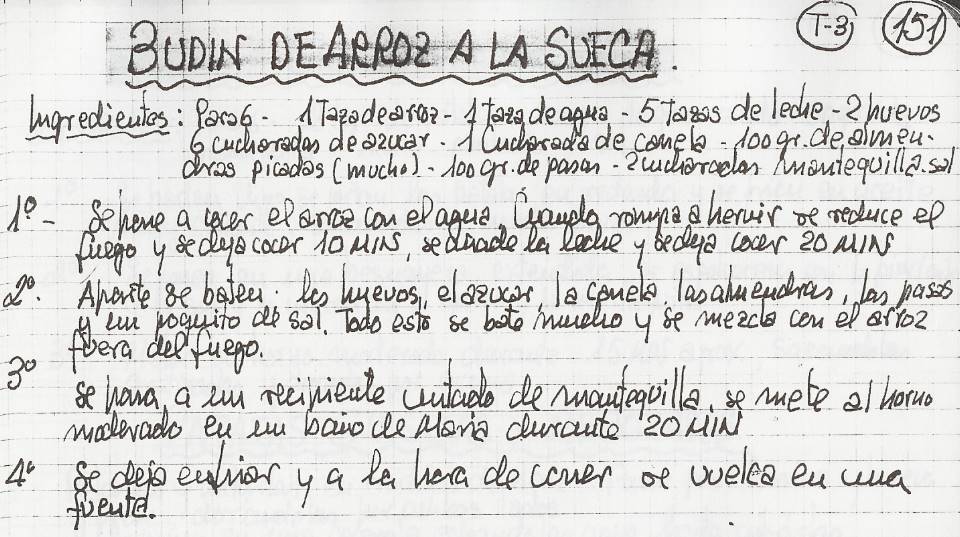 T-3 151
BUDIN DE ARROZ A LA SUECA.
Ingredientes: Para 6 - 1 Taza de arroz - 1 taza de agua - 5 Tazas de leche - 2 huevos
6 cucharadas de azucar - 1 Cucharada de canela - 100 gr. de almen-
dras picadas (mucho) - 100 gr. de pasas - 2 cucharadas mantequilla. sal
1º - Se pone a cocer el arroz con el agua, Cuando rompa a hervir se reduce el
fuego y se deja cocer 10 MINS, se añade la leche y se deja cocer 20 MINS
2º. Aparte se baten los huevos, el azucar, la canela, las almendras, las pasas
y un poquito de sal. Todo esto se bate mucho y se mezcla con el arroz
fuera del fuego.
3º
Se pasa a un recipiente untado de mantequilla, se mete al horno
moderado en un baño de Maria durante 20 MIN
4º Se deja enfriar y a la hora de comer se vuelca en una
fuente.